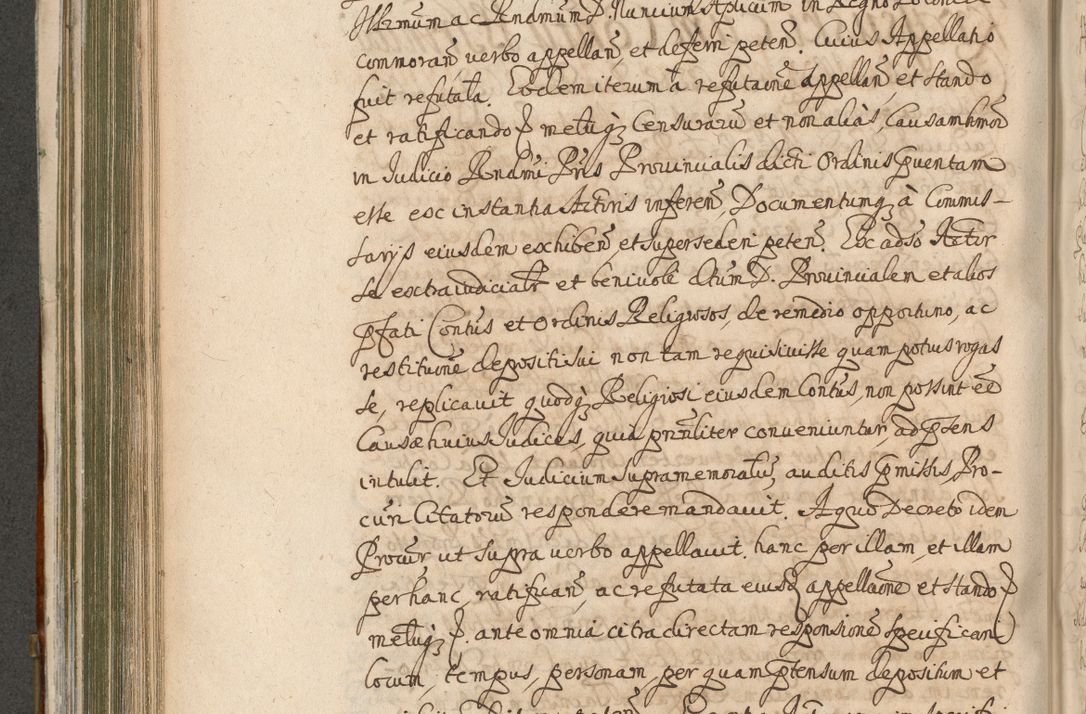 Illmum ac Rndmum D. Nuncium Aplicum in Regno Poloniæ
commorañ verbo appellañ et deferri peteñ. Cuius Appellatio
fuit refutata. Eodem iterum à refutatione appellañ et stando
et ratificando p metuq; Censuraru et non aliàs, Causam hmoi
in Iudicio Rndmi Pris Prouincialis dicti Ordinis pventam
esse ex instantia Actoris infereñ, Documentumq; à Commis-
sarijs eiusdem exhibeñ, et supersederi peteñ. Ex adso Actor
se extraiudicialr et beniuole dtum D. Prouincialem et alios
pfati Contus et Ordinis Religiosos, de remedio opportuno, ac
restitutione depositi sui non tam requisiuisse quam potius rogas
se, replicauit quodq; Religiosi eiusdem Contus, non possint eē
Causæ huius Iudices, quia prñliter conveniuntur, ad psens
intulit. Et Iudicium supramemoratu, auditis pmissis, Pro-
curī Citatoru respondere mandauit. A quo Decreto idem
Procur ut supra verbo appellauit. hanc per illam, et illam
per hanc, ratificañ, ac refutata eiusd appellaōne et stando p
metuq; p. ante omnia citra directam responsione specificari
locum, tempus, personam, per quam ptensum depositum et